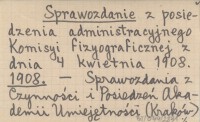 Sprawozdanie z posie-
dzenia administracyjnego
Komisyi fizyograficznej z
dnia 4 kwietnia 1908.
1908. — Sprawozdania z
Czynności i Posiedzeń Aka-
demii Umiejętności (Kraków)